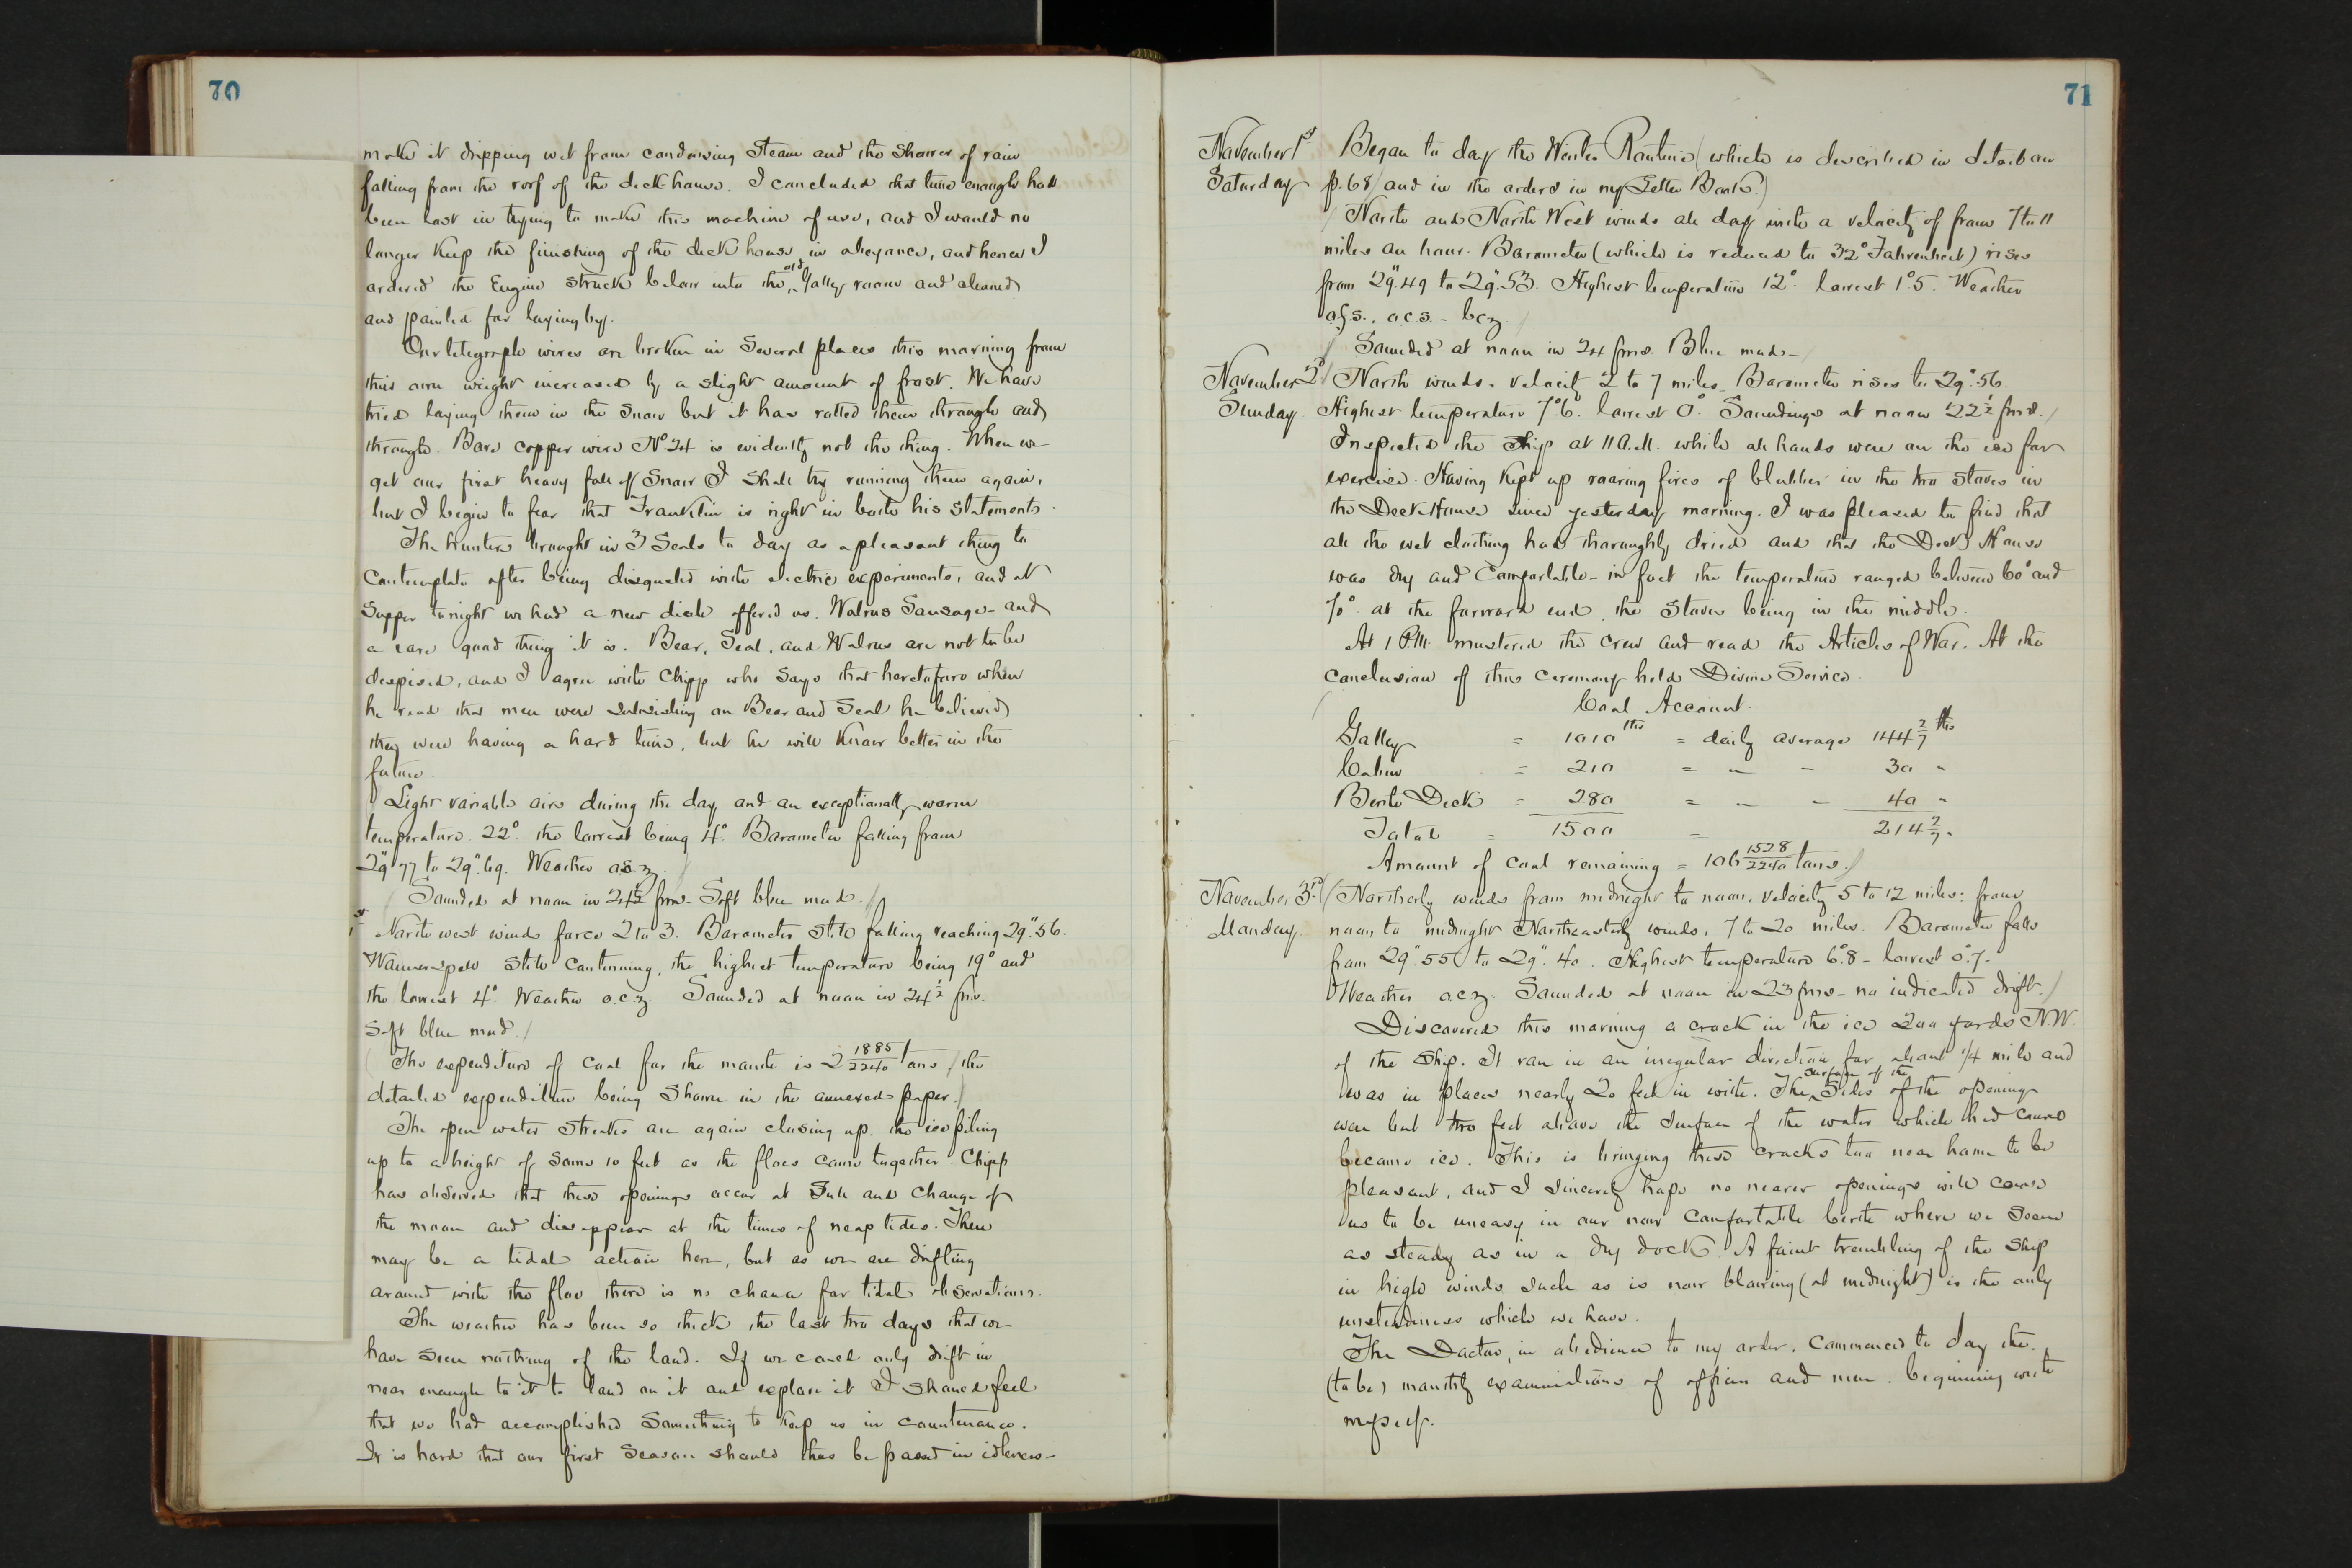 70
make it dripping wet from condensing steam and the shower of rain
falling from the roof of the deck house. I concluded that time enough had
been lost in trying to make this machine of use, and I would no
longer keep the finishing of the deck house in abeyance, and hence I
ordered the Engine struck below into the old galley room and cleaned
and painted for laying by.
Our telegraph wires are broken in several places this morning from
their own weight increased by a slight amount of frost. We have
tried laying them in the snow but it has rotted them through and
through. Bare copper wire No. 24 is evidently not the thing. When we
get our first heavy fall of snow I shall try running them again,
but I begin to fear that Franklin is right in both his statements.
The hunters brought in 3 Seals to day as a pleasant thing to
contemplate after being disgusted with electric experiments, and at
supper tonight we had a new dish offered us. Walrus Sausage - and
a rare good thing it is. Bear, Seal, and Walrus are not to be
despised, and I agree with Chipp who says that heretofore when
he read that men were subsisting on Bear and Seal he believed
they were having a hard time, but he will know better in the
future.
(Light variable airs during the day and an exceptionally warm
temperature. 22° the lowest being 4° Barometer falling from
29".77 to 29".69. Weather o.s.z./
(Sounded at noon in 24½ fms. Soft blue mud./
st
North west winds force 2 to 3. Barometer still falling reaching 29".56.
Warm spell still continuing, the highest temperature being 19° and
the lowest 4°. Weather o.c.z. Sounded at noon in 24½ fms.
Soft blue mud./
(The expenditure of coal for the month is 2 1885/2240 tons / the
detailed expenditure being shown in the annexed paper./
The open water streaks are again closing up. the ice piling
up to a height of some 10 feet as the floes came together. Chipp
has observed that these openings occur at Full and Change of
the moon and disappear at the times of neap tides. There
may be a tidal action here, but as we are drifting
around with the floe there is no chance for tidal observations.
The weather has been so thick the last two days that we
have seen nothing of the land. If we could only drift in
near enough to it to land on it and explore it I should feel
that we had accomplished something to keep us in countenance.
It is hard that our first season should thus be passed in idleness -
71
November 1st
Saturday
Began to day the Winter Routine (which is described in detail on
p. 68/ and in the orders in my Letter Book.)
/North and North West winds all day with a velocity of from 7 to 11
miles an hour. Barometer (which is reduced to 32° Fahrenheit) rises
from 29".49 to 29".53. Highest temperature 12°. lowest 1°.5. Weather
o.g.s., o.c.s. - bcz/
/ Sounded at noon in 24 fms. Blue mud - /
November 2d
Sunday
/North winds. velocity 2 to 7 miles. Barometer rises to 29".56.
Highest temperature 7°.6. lowest 0°. Soundings at noon 22½ fms./
Inspected the ship at 11 A.M. while all hands were on the ice for
exercise. Having kept up roaring fires of blubber in the two stoves in
the Deck House since yesterday morning. I was pleased to find that
all the wet clothing had thoroughly dried and that the Deck House
was dry and comfortable - in fact the temperature ranged between 60° and
70°. at the forward end, the stoves being in the middle.
At 1 P.M. mustered the crew and read the Articles of War. At the
conclusion of this ceremony held Divine Service.
( Coal Account.
Galley = 1010 lbs = daily average 144 2/7 lbs
Cabin = 210 = " " 30 "
Berth Deck = 280 = " " 40 "
Total = 1500 = 214 2/7 "
Amount of coal remaining = 106 1528/2240 tons./
November 3rd
Monday
/(Northerly winds from midnight to noon, velocity 5 to 12 miles: from
noon to midnight Northeasterly winds, 7 to 20 miles. Barometer falls
from 29".55 to 29".40. Highest temperature 6°.8 - lowest 0°.7 -
Weather o.c.z. Sounded at noon in 23 fms - no indicated drift./
Discovered this morning a crack in the ice 200 yards N.W.
of the ship. It ran in an irregular direction for about ¼ mile and
was in places nearly 20 feet in width. The surface of the sides of the opening
were but two feet above the surface of the water which had
become ice. This is bringing these cracks too near home to be
pleasant, and I sincerely hope no nearer openings will cause
us to be uneasy in our now comfortable berth where we seem
as steady as in a dry dock. A faint trembling of the ship
in high winds such as is now blowing (at midnight) is the only
unsteadiness which we have.
The Doctor, in obedience to my order, commenced to day the
(to be) monthly examinations of officers and men. beginning with
myself.